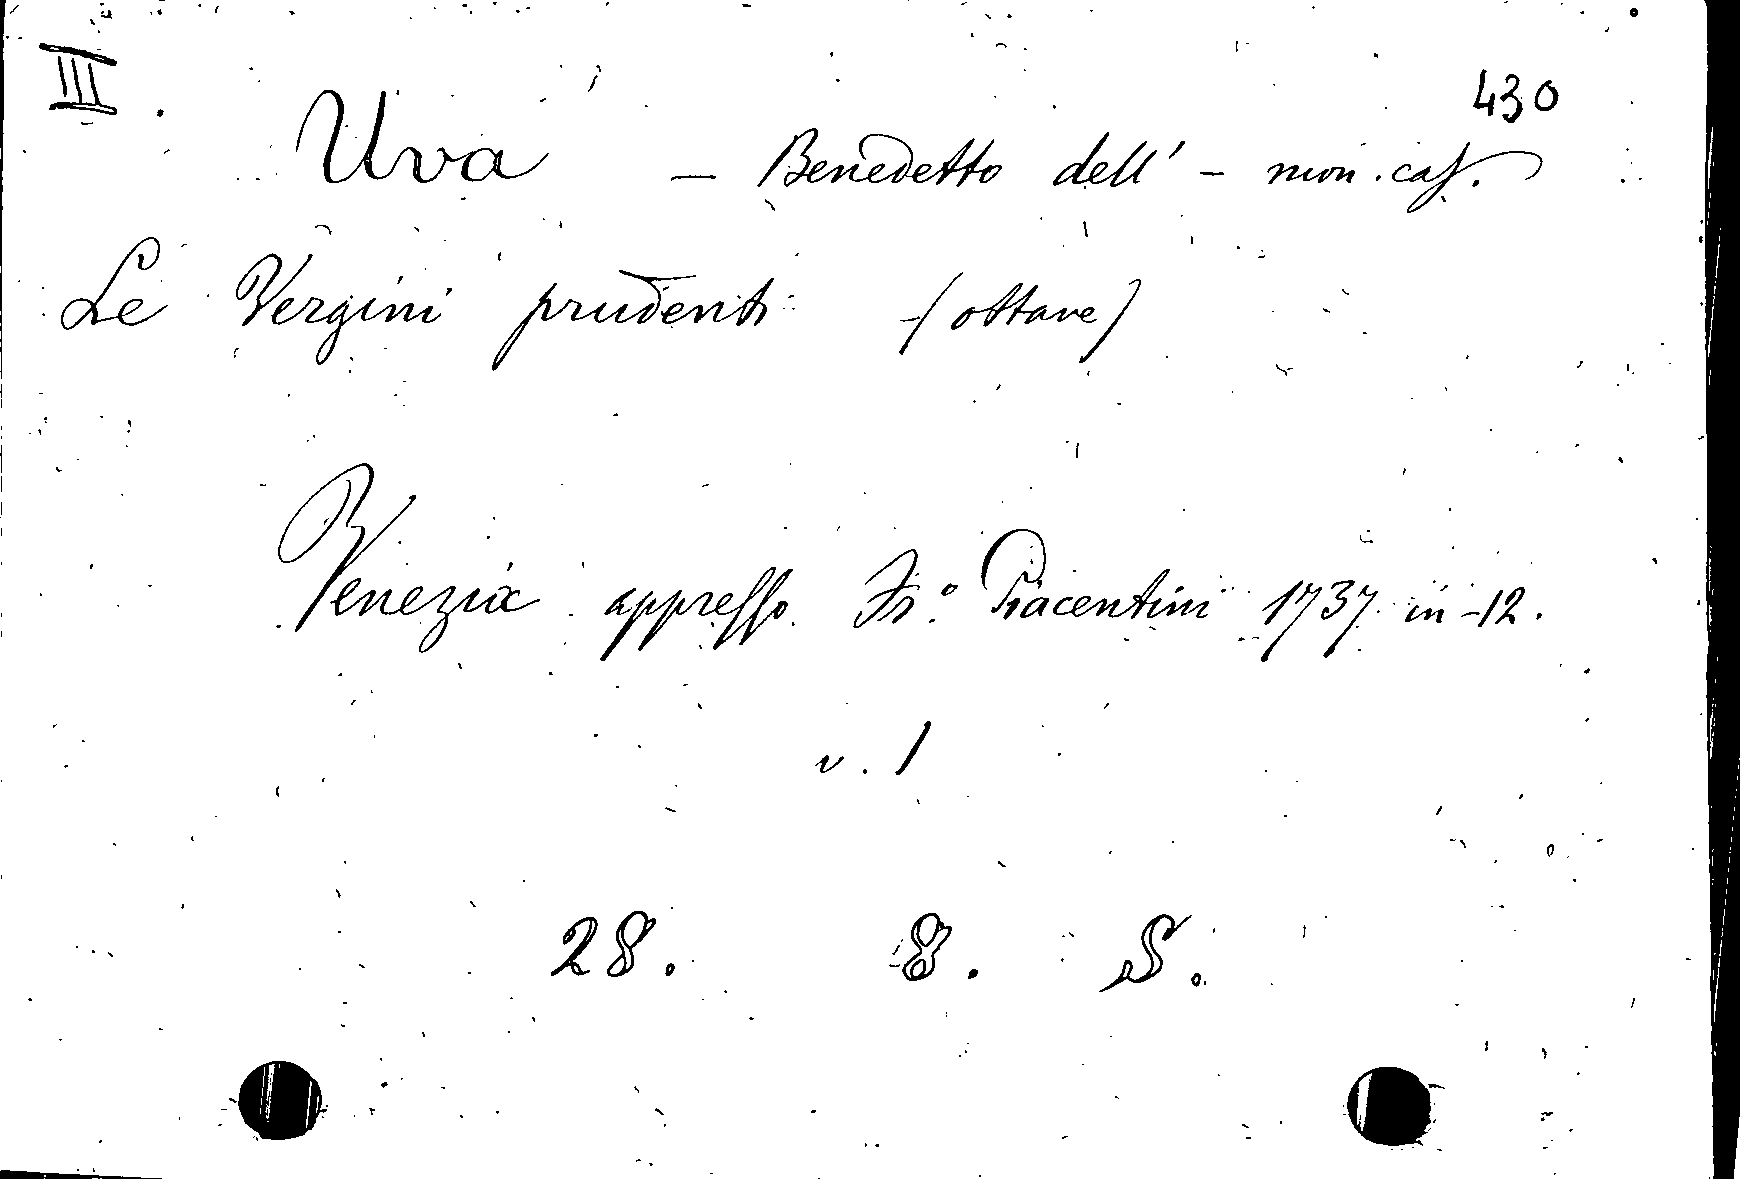 III.
430
Uva — Benedetto dell' - mon. cas.
Le Vergini prudenti - (ottave)
Venezia appresso Fr.º Piacentini 1737 in -12.
v. 1
28. 8. S.